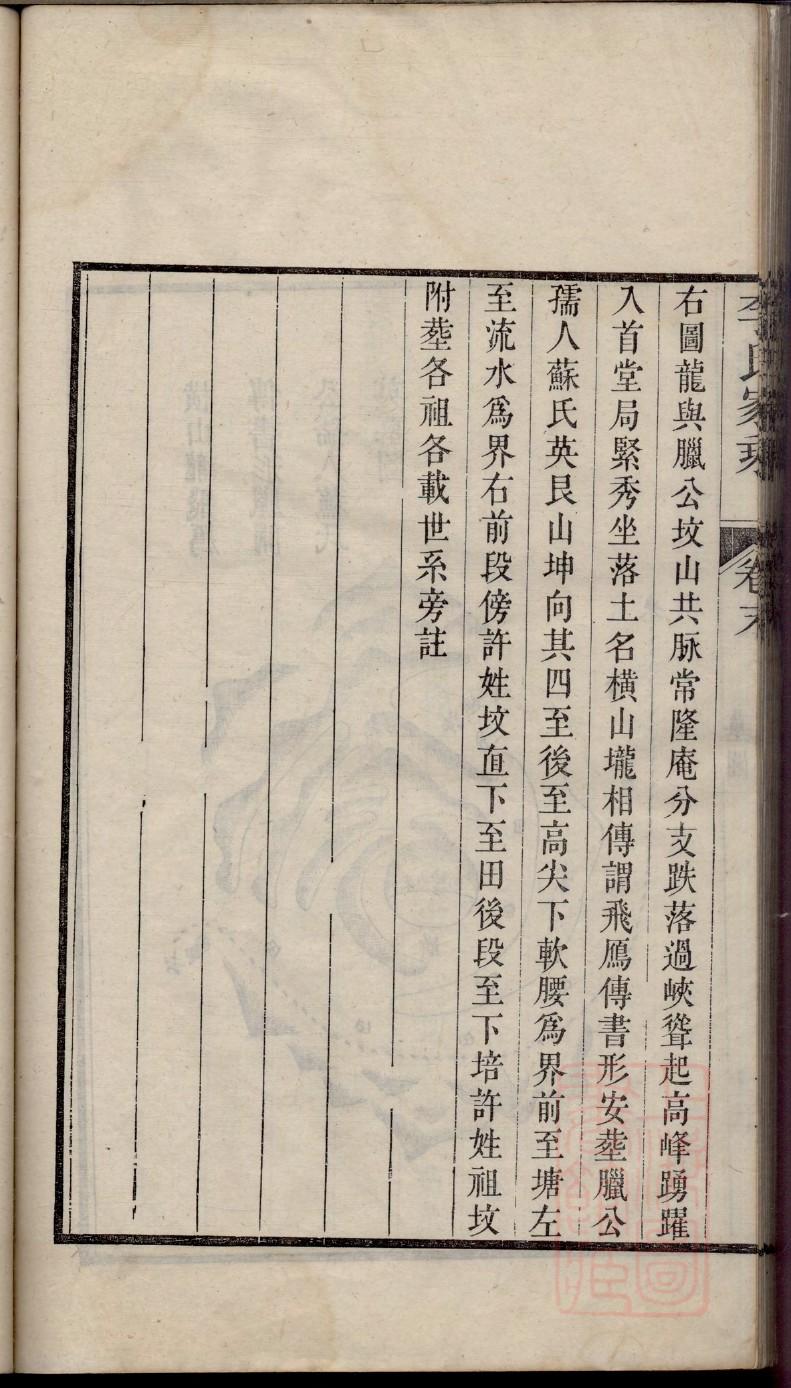 李氏家乘 卷末
右圖龍與臘公坟山共脉常隆庵分支跌落過峽聳起高峰踴躍
入首堂局緊秀坐落土名橫山壠相傳謂飛鴈傳書形安塟臘公
孺人蘇氏英艮山坤向其四至後至高尖下軟腰爲界前至塘左
至流水爲界右前段傍許姓坟直下至田後段至下培許姓祖坟
附塟各祖各載世系旁註